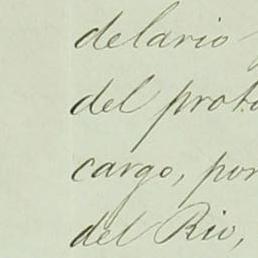 delario
del proto
cargo, por
del Rio,